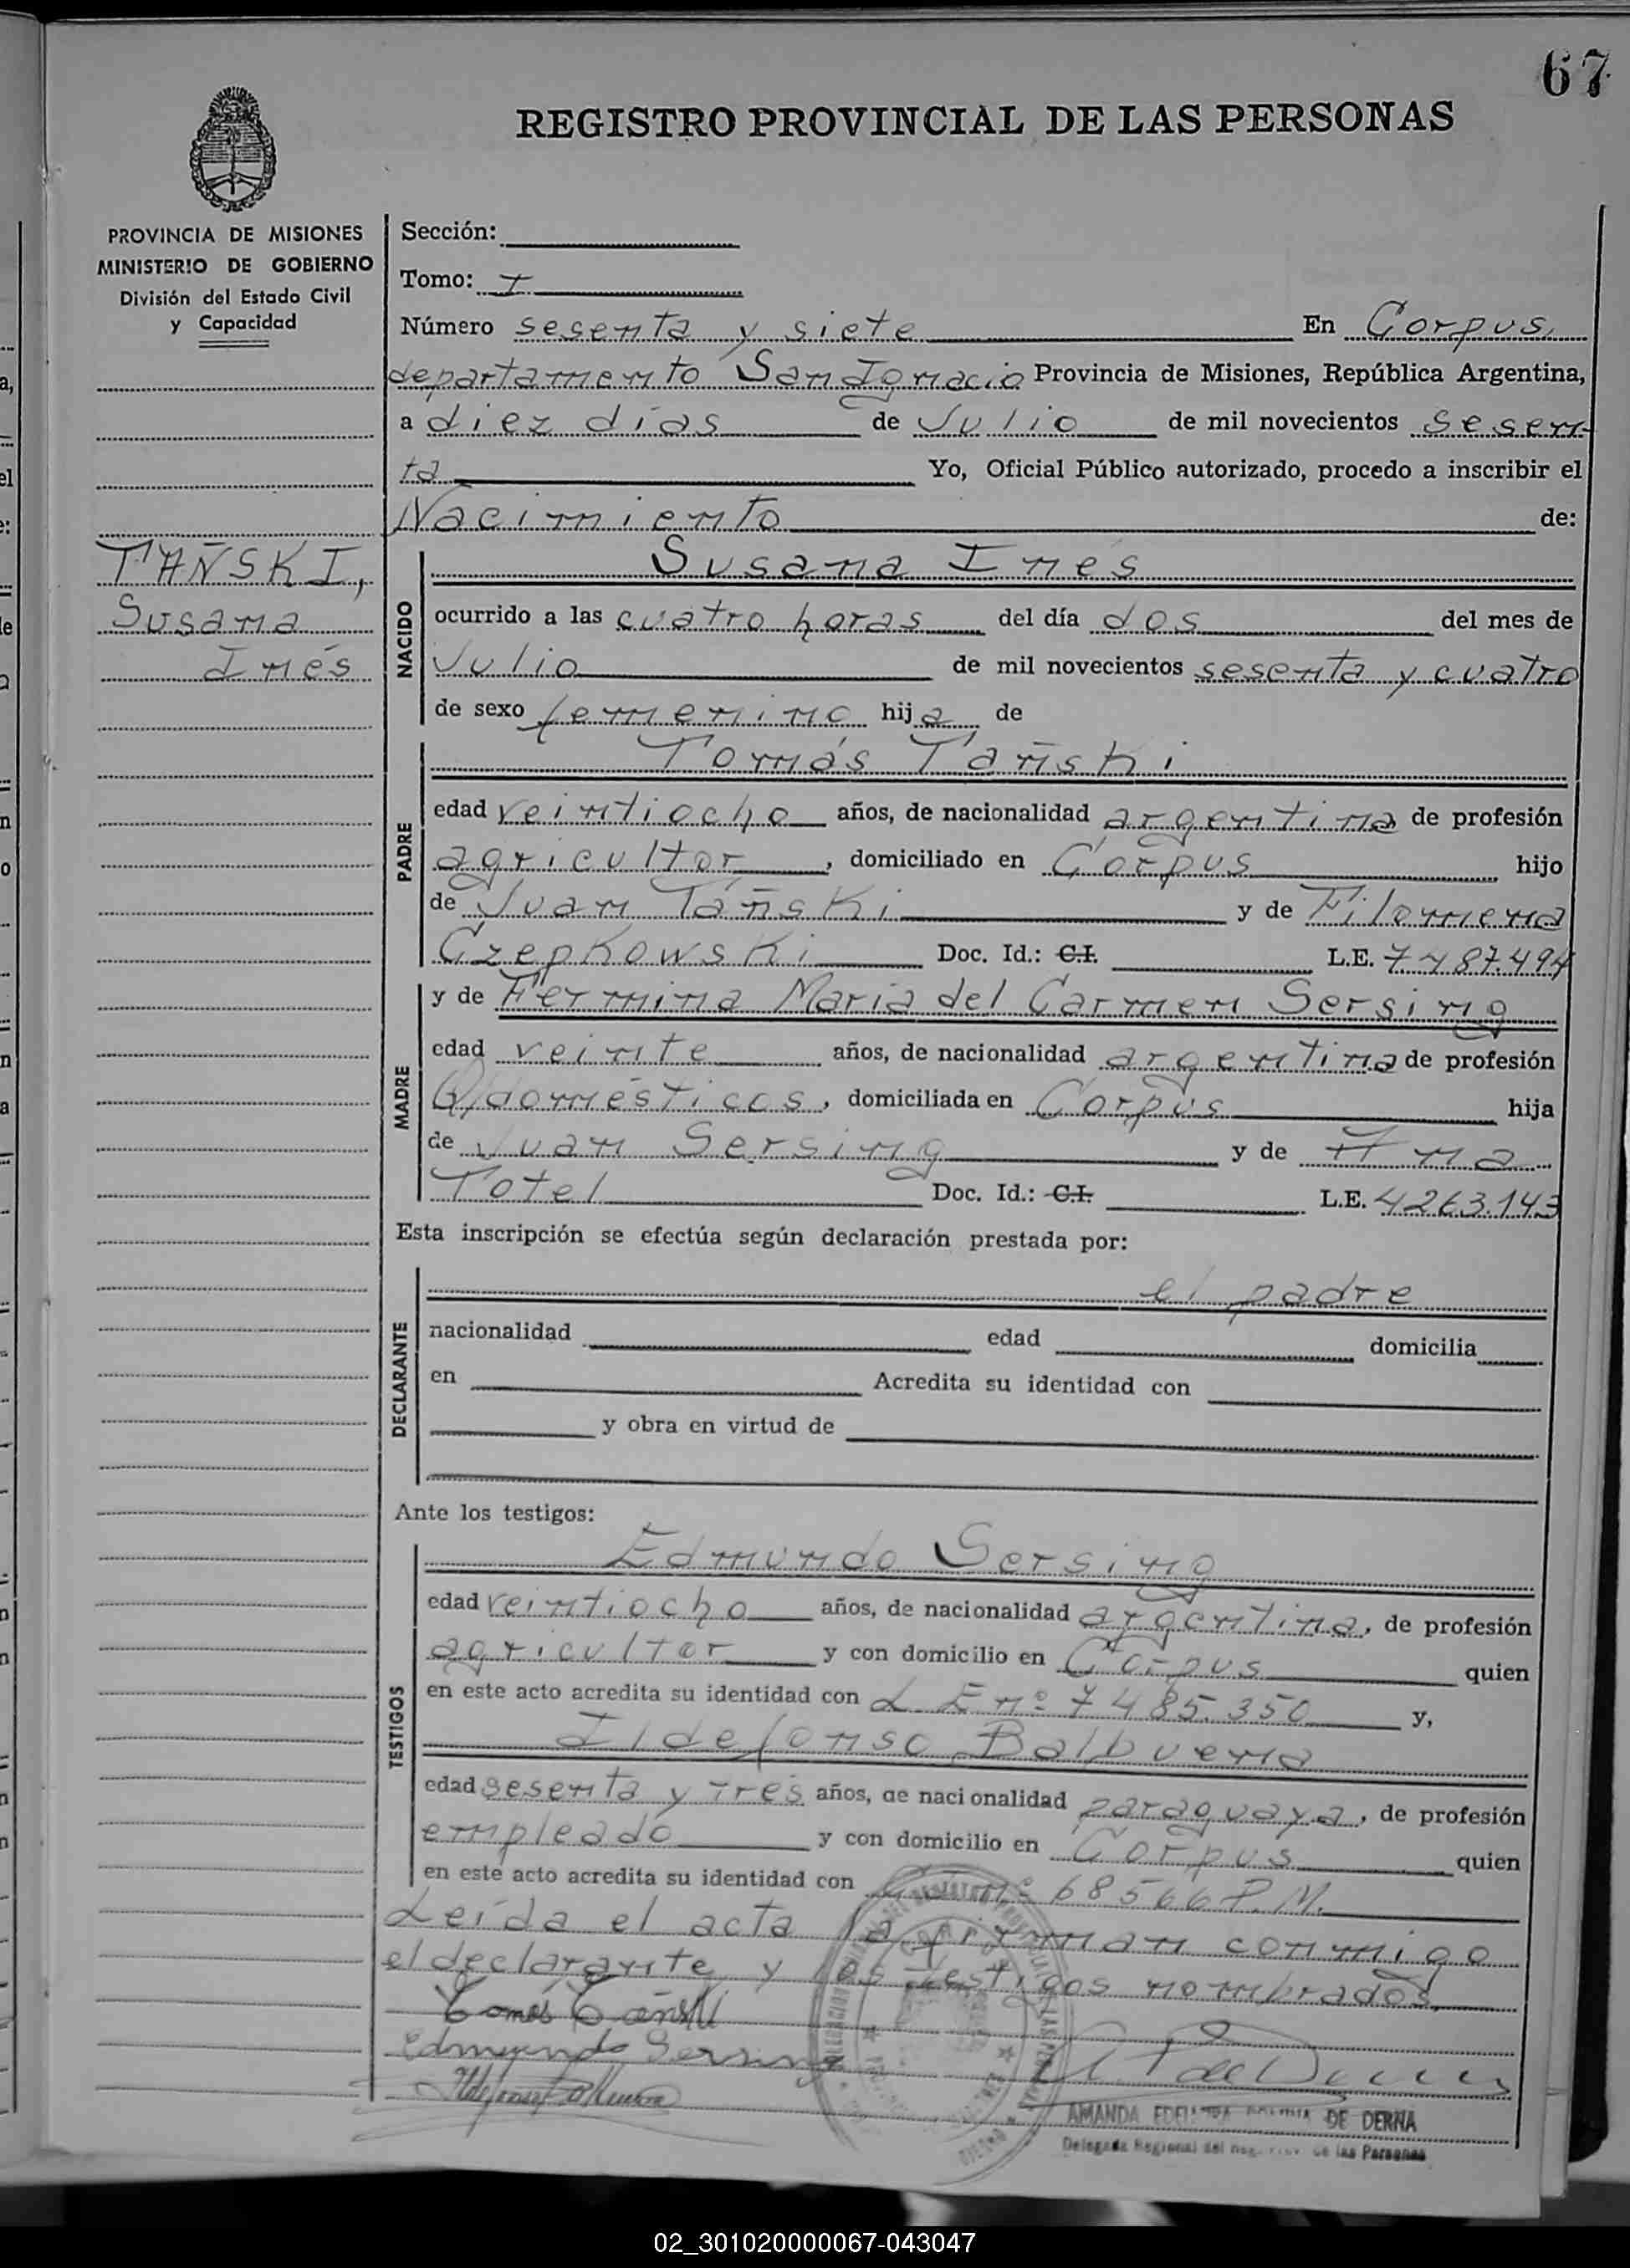 67
REGISTRO PROVINCIAL DE LAS PERSONAS
PROVINCIA DE MISIONES
MINISTERIO DE GOBIERNO
División del Estado Civil
y Capacidad
TAÑSKI,
Susana
Inés
Sección:
Tomo: I
Número sesenta y siete En Corpus,
departamento San Ignacio Provincia de Misiones, República Argentina,
a diez días de Julio de mil novecientos sesen-
ta Yo, Oficial Público autorizado, procedo a inscribir el
Nacimiento de:
NACIDO
Susana Inés
ocurrido a las cuatro horas del día dos del mes de
Julio de mil novecientos sesenta y cuatro
de sexo femenino hija de
PADRE
Tomás Tañski
edad veintiocho años, de nacionalidad argentina de profesión
agricultor, domiciliado en Corpus hijo
de Juan Tañski y de Filomena
Czepkowski Doc. Id.: C.I. L.E. 7487.494
MADRE
y de Fermina María del Carmen Sersing
edad veinte años, de nacionalidad argentina de profesión
Q/domésticos, domiciliada en Corpus hija
de Juan Sersing y de Ana
Totel Doc. Id.: C.I. L.E. 4263.143
Esta inscripción se efectúa según declaración prestada por:
DECLARANTE
el padre
nacionalidad edad domicilia
en Acredita su identidad con
y obra en virtud de
Ante los testigos:
TESTIGOS
Edmundo Sersing
edad veintiocho años, de nacionalidad argentina, de profesión
agricultor y con domicilio en Corpus quien
en este acto acredita su identidad con L. E nº 7485.350 y,
Ildefonso Balbuena
edad sesenta y tres años, de nacionalidad paraguaya, de profesión
empleado y con domicilio en Corpus quien
en este acto acredita su identidad con nº 68566 P.M.
Leída el acta la firman conmigo
el declarante y los testigos nombrados.
Tomás Tañski
Edmundo Sersing
AMANDA DE DERNA
Delegada Regional del de las Personas
02_301020000067-043047